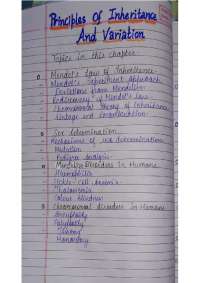 Principles of Inheritance
And Variation
Topics in this chapter
Mendel's Law of Inheritance
- Mendel's experiment approach
- Deviations from Mendelism
- Rediscovery of Mendel's Law
- Chromosomal Theory of Inheritance
- Linkage and Recombination
Sex Determination
- Mechanisms of sex determination
- Mutation
- Pedigree analysis
Mendelian Disorders in Humans
- Haemophilia
- Sickle-cell anaemia
- Thalassemia
- Colour Blindness
Chromosomal disorders in Humans
- Aneuploidy
- Polyploidy
- Trisomy
- Monosomy